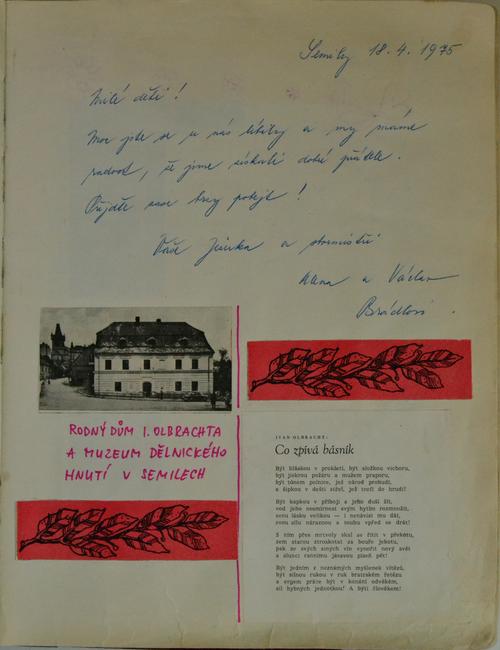 Semily 18.4.1975
Milé děti!
Moc jste se u nás líbily a my máme
radost, že jsme získali dobré přátele.
Přijďte zase brzy pobejt!
Vaše Jiřinka a
Alena a Václav
Brádlovi.
RODNÝ DŮM I. OLBRACHTA
A MUZEUM DĚLNICKÉHO
HNUTÍ V SEMILECH
IVAN OLBRACHT:
Co zpívá básník
Být hláskou v prokletí, být složkou vichoru,
být jiskrou požáru a mužem praporu,
být tónem polnice, jež národ probudí,
a šipkou v dešti střel, jež tročí do hrudi!
Být kapkou v příboji a jeho duši žít,
vod jeho nesmírnost svým bytím rozmnožit,
svou lásku velikou — i nenávist mu dát,
svou sílu náraznou a touhu vpřed se drát!
S ním přes mrtvoly skal se řítit v překotu,
sem starou ztroskotat za bouře jekotu,
pak ze svých siných vln vynořit nový svět
a slunci rannímu jásavou píseň pět!
Být jedním z neznámých myšlenek vítězů,
být silnou rukou v ruk bratrském řetězu
a orgem práce být v konání odvěkém,
sil hybných jednotkou! A býti člověkem!